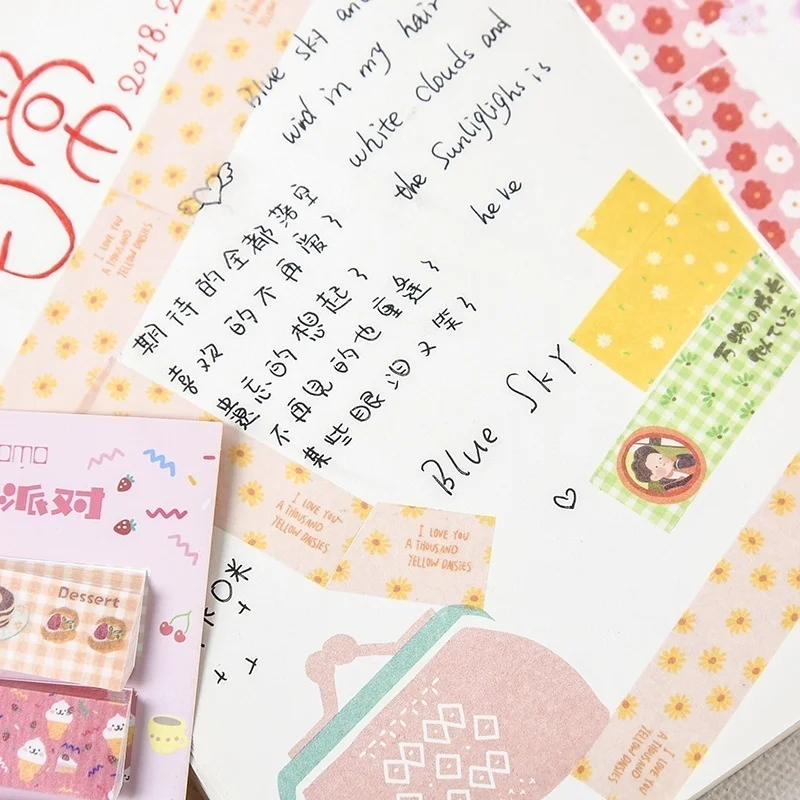 2018.2
Blue sky and
wind in my hair
white clouds and
the Sunliglighs is
heke
期待的全都落空
喜欢的不再爱了
遗忘的想起了
不再見的也重逢了
某些眼泪又笑了
Blue SKY
I LOVE YOU
A THOUSAND
YELLOW DAISIES
I LOVE YOU
A THOUSAND
YELLOW DAISIES
I LOVE YOU
A THOUSAND
YELLOW DAISIES
I LOVE YOU
A THOUSAND
YELLOW DAISIES
派对
Dessert